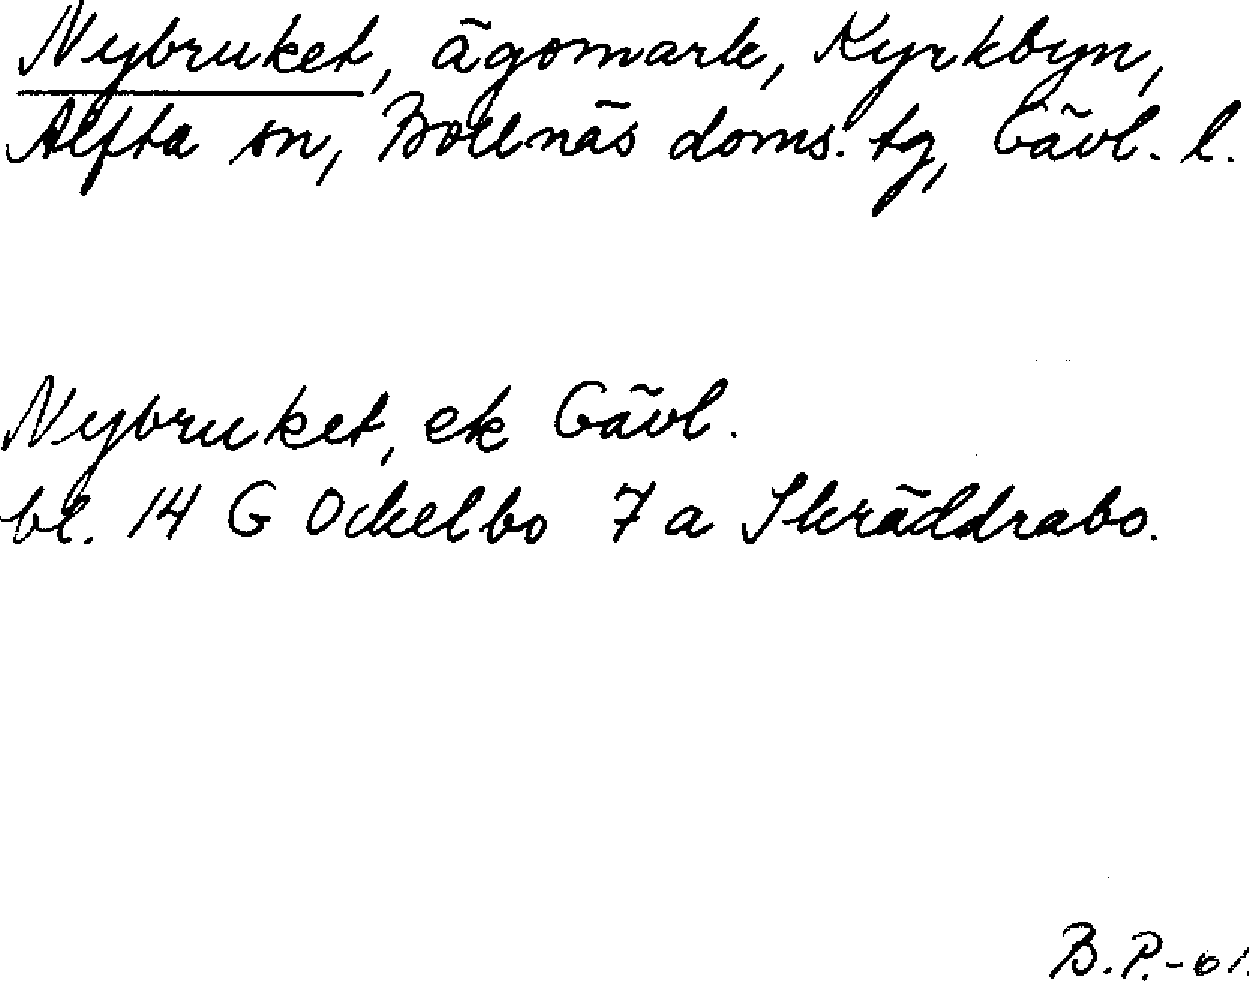 Nybruket, ägomark, Kyrkbyn,
Alfta sn, Bollnäs doms. tg, Gävl. l.
Nybruket, ek Gävl.
bl. 14 G Ockelbo 7 a Skräddrabo.
B.P.-61.